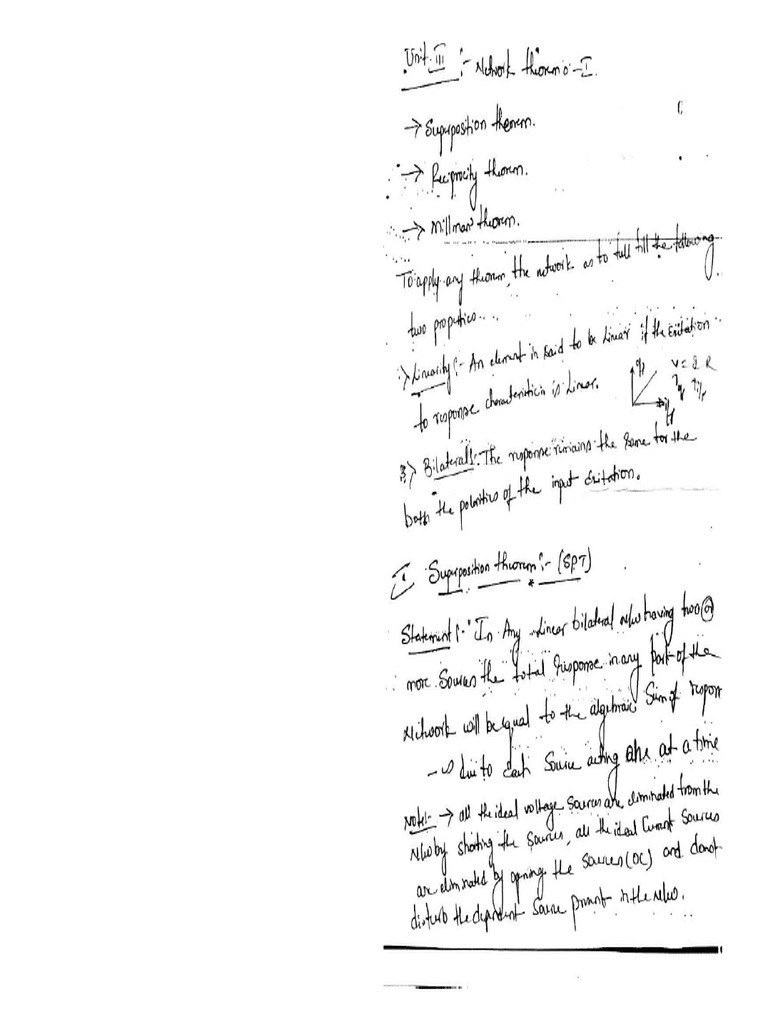 Unit III :- Network theorems - I.
→ Superposition theorem.
→ Reciprocity theorem.
→ Millman theorem.
To apply any theorem, the network as to full fill the following
two properties.
Linearity :- An element is said to be linear if the exitation
to response characteristic is linear.
Bilateral :- The response remains the same for the
both the polarities of the input exitation.
I Superposition theorem :- (SPT)
Statement :- "In Any linear bilateral n/w having two (or)
more sources the total response in any part of the
Network will be equal to the algebraic sum of respon
due to each source acting one at a time
Note:- → all the ideal voltage sources are eliminated from the
n/w by shorting the sources, all the ideal current sources
are eliminated by opening the sources (OC) and donot
disturb the dependent source present in the n/w.